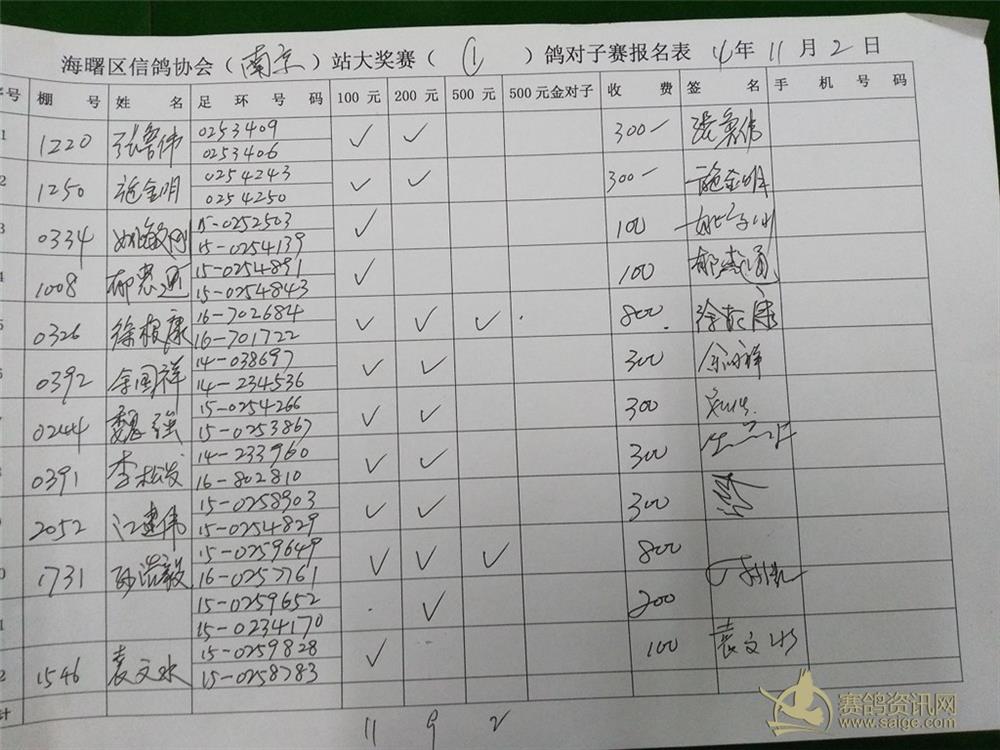 海曙区信鸽协会（南京）站大奖赛（ ① ）鸽对子赛报名表 年 11 月 2 日
序号 棚 号 姓 名 足 环 号 码 100 元 200 元 500 元 500元金对子 收 费 签 名 手 机 号 码
1 1220 张鲁伟 0253409 ✓ ✓ 300 张鲁伟
0253406
2 1250 施金明 0254243 ✓ ✓ 300 施金明
0254250
3 0334 姚敏刚 15-0252503 ✓ 100
15-0254139
1008 郁惠通 15-0254891 ✓ 100 郁惠通
15-0254843
0326 徐根康 16-702684 ✓ ✓ ✓ 800 徐根康
16-701722
0392 余国祥 14-038697 ✓ ✓ 300 余国祥
14-234536
0244 魏强 15-0254266 ✓ ✓ 300
15-0253867
0391 李松发 14-233960 ✓ ✓ 300
16-802810
2052 江建伟 15-0258903 ✓ ✓ 300
15-0254829
1731 15-0259649 ✓ ✓ ✓ 800
16-0257761
15-0259652 ✓ 200
15-0234170
2 1546 袁文水 15-0259828 ✓ 100 袁文水
15-0258783
计 11 9 2
赛鸽资讯网
www.saige.com